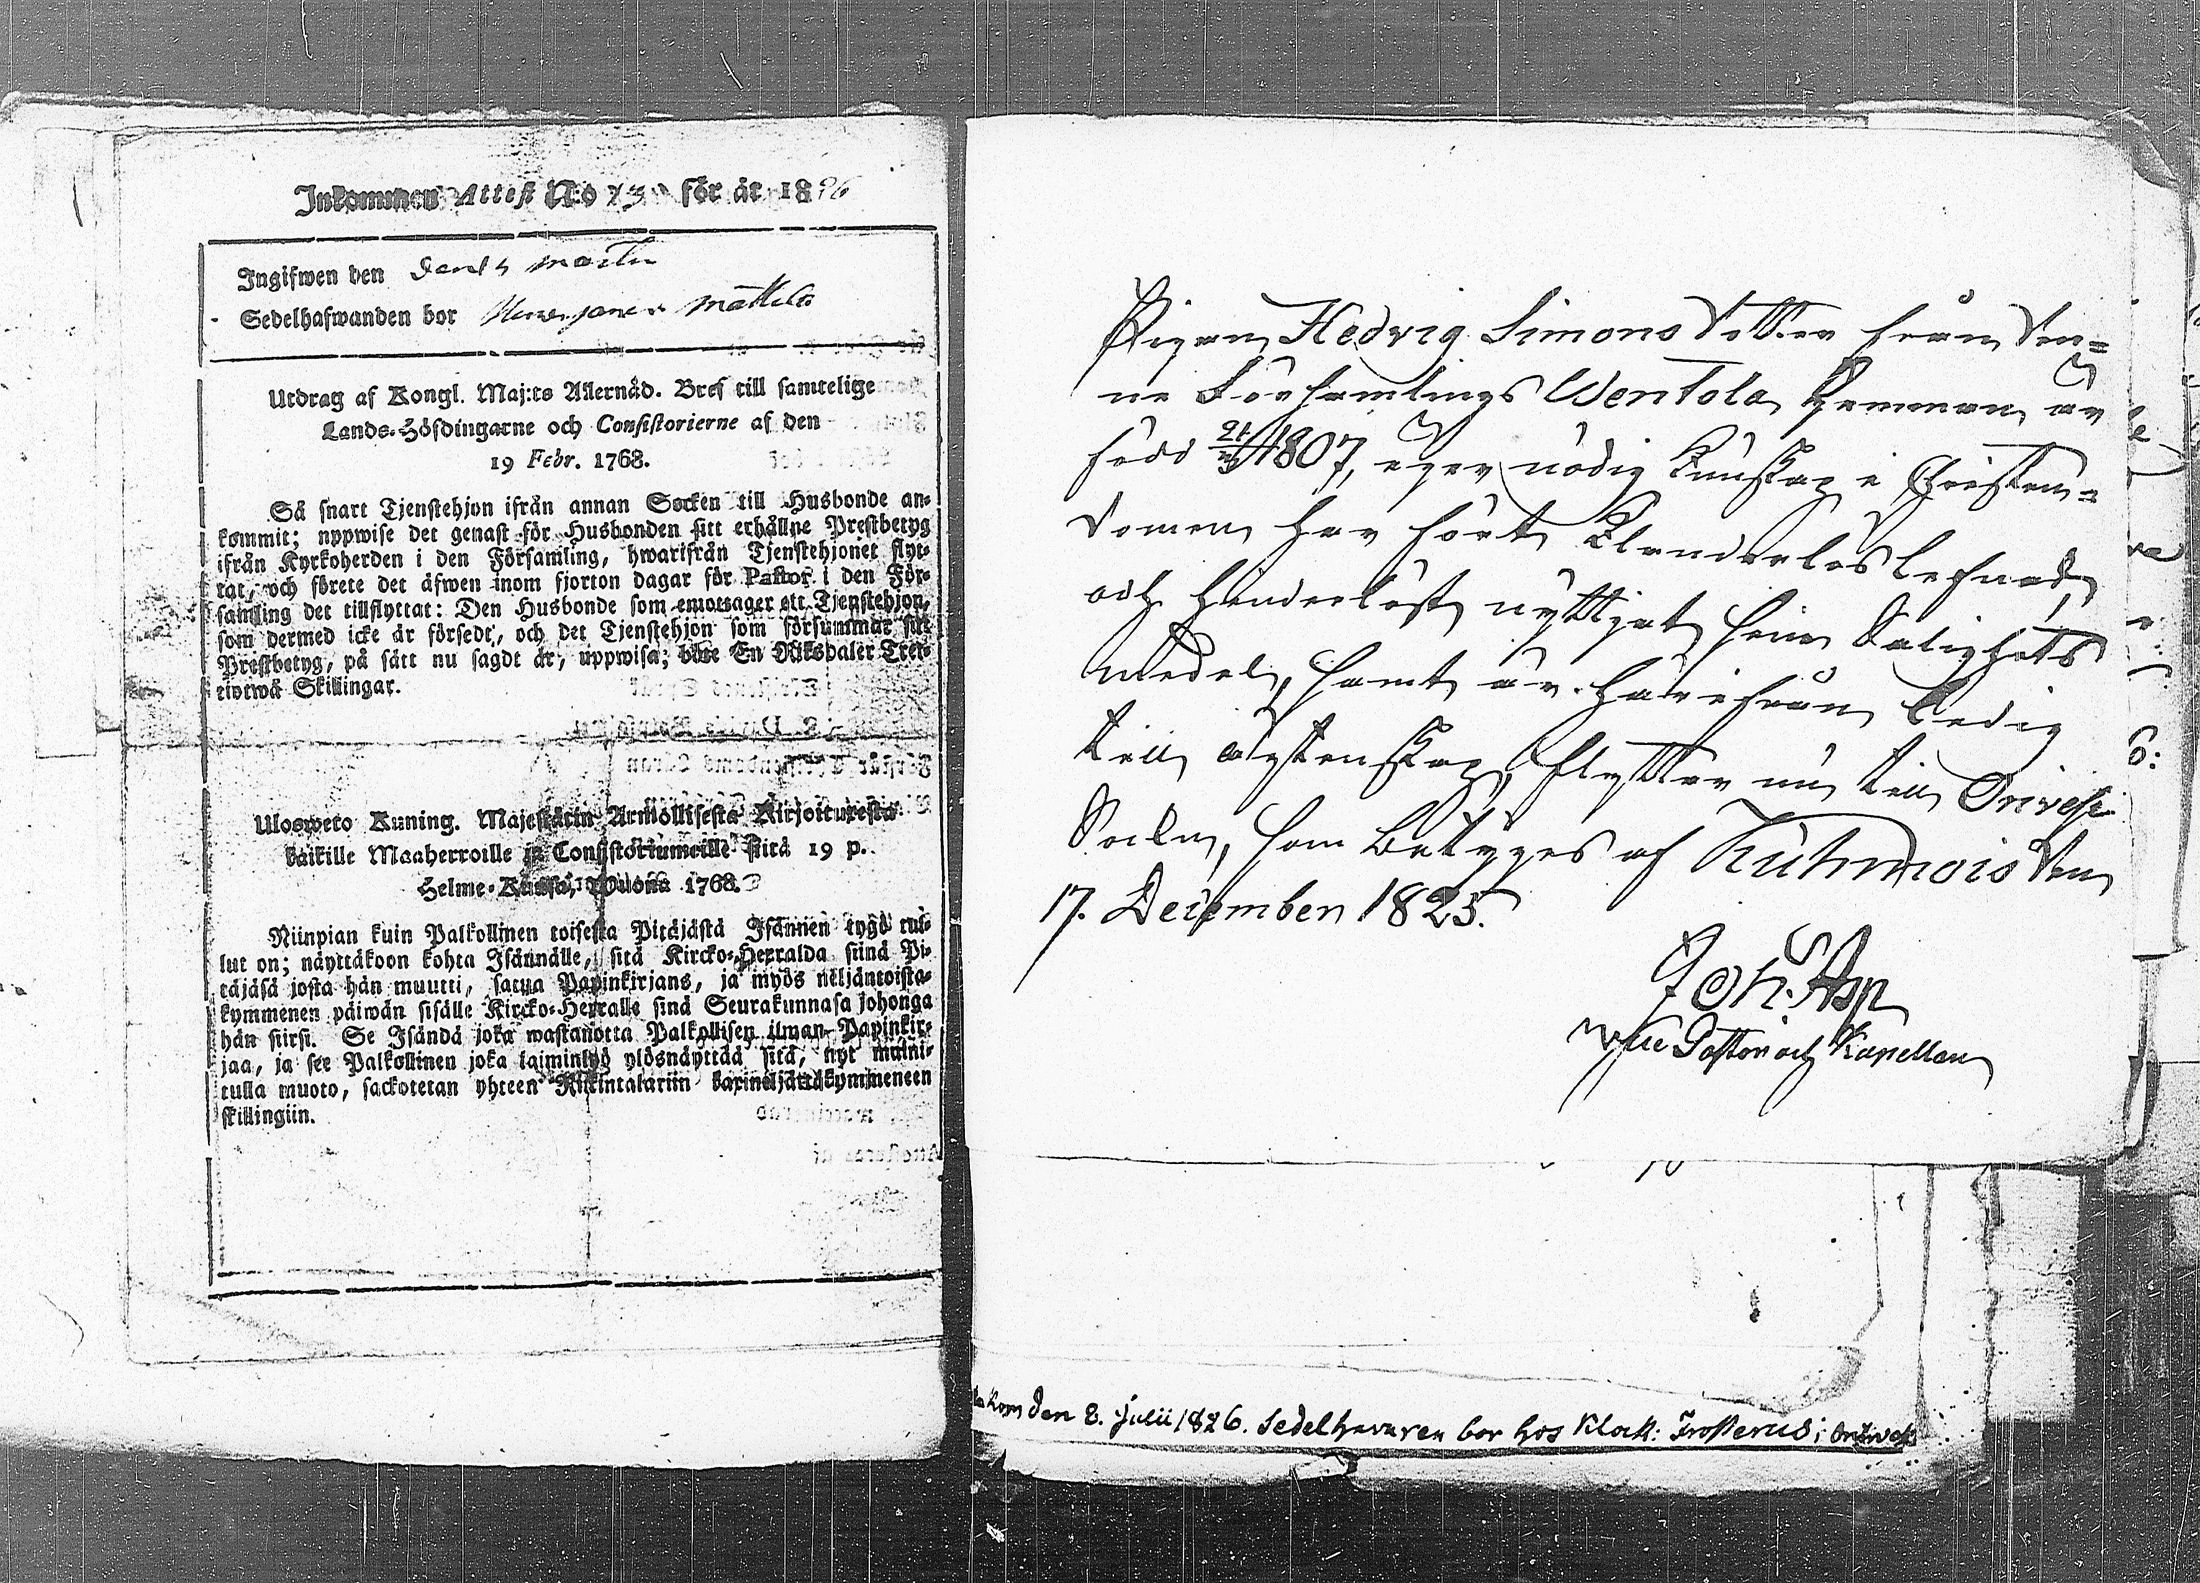 Inkommen Attest N:o för år 1826
Ingifwen den
Sedelhafwanden bor
Utdrag af Kongl. Maj:ts Allernåd. Bref till samtelige
Lands-Höfdingarne och Consistorierne af den
19 Febr. 1768.
Så snart Tjenstehjon ifrån annan Socken till Husbonde an-
kommit; uppwise det genast för Husbonden sitt erhållne Prestbetyg
ifrån Kyrkoherden i den Församling, hwarifrån Tjenstehjonet flyt-
tat, och förete det äfwen inom fjorton dagar för Pastor i den För-
samling det tillflyttat: Den Husbonde som emottager ett Tjenstehjon,
som dermed icke är försedt, och det Tjenstehjon som försummar sitt
Prestbetyg, på sätt nu sagdt är, uppwisa; böte En Riksdaler Tret-
tiotwå Skillingar.
Ulosweto Kuning. Majestätin Armollisesta Kirjoituresta
kaikille Maaherroille ja Consistoriumeille siitä 19 p.
Helme-Kuusa, Wuonna 1768.
Niinpian kuin Palkollinen toisesta Pitäjästä Isännen tygö tul-
lut on; näyttäkoon kohta Isännälle, sitä Kircko-Herralda siinä Pi-
täjäsä josta hän muutti, saatua Papinkirjans, ja myös neljäntoista-
kymmenen päiwän sisälle Kircko-Herralle sinä Seurakunnasa johonga
hän siirsi. Se Isändä joka wastanotta Palkollisen ilman Papinkir-
jaa, ja see Palkollinen joka laiminlyö ylösnäyttää sitä, nyt maini-
tulla muoto, sackotetan yhteen Riikintalariin kaxineljättäkymmeneen
skillingiin.
Pigan Hedvig Simonsdotter från den-
ne Församlings Wentola Hemman är
född 21/3 1807, eger nödig Kunskap i Christen-
domen, har fört Klanderlös lefnad,
och hinderlöst nyttjat sina Salighets
medel, samt är härifrån ledig
till äktenskap, flyttar nu till Orivesi
Socken, som betyges af Kuhmois den
17. December 1825.
Joh: Asp
Vice Pastor och Kapellan
kom den 2. Julii 1826. Sedelhavaren bor hos Klock: Frosterus i Orivesi